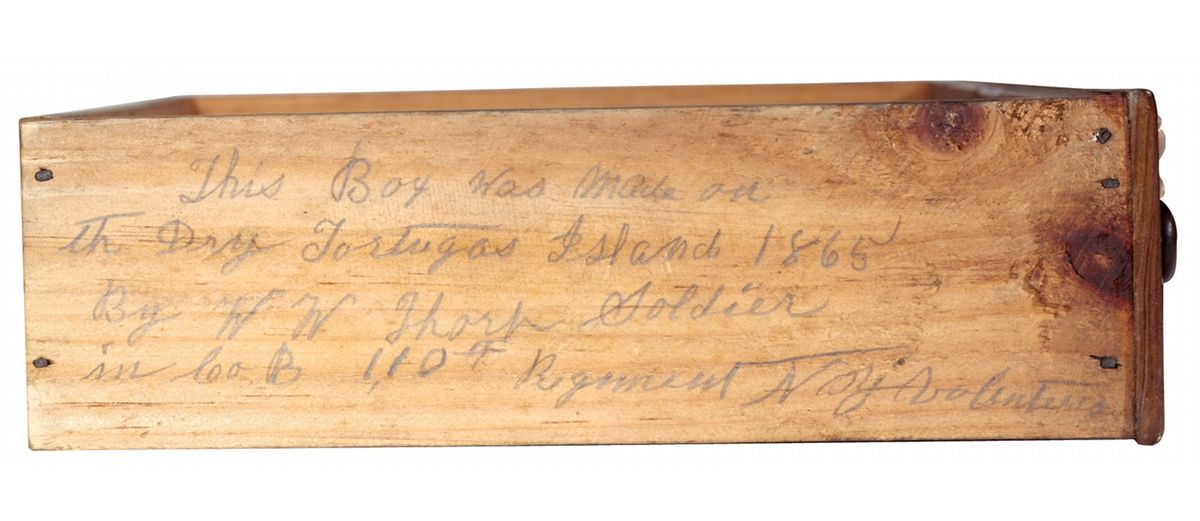 This Box was Made on
th Dry Tortugas Island 1865
By W W Thorp Soldier
in Co B 110th Regiment N Y Volenteers